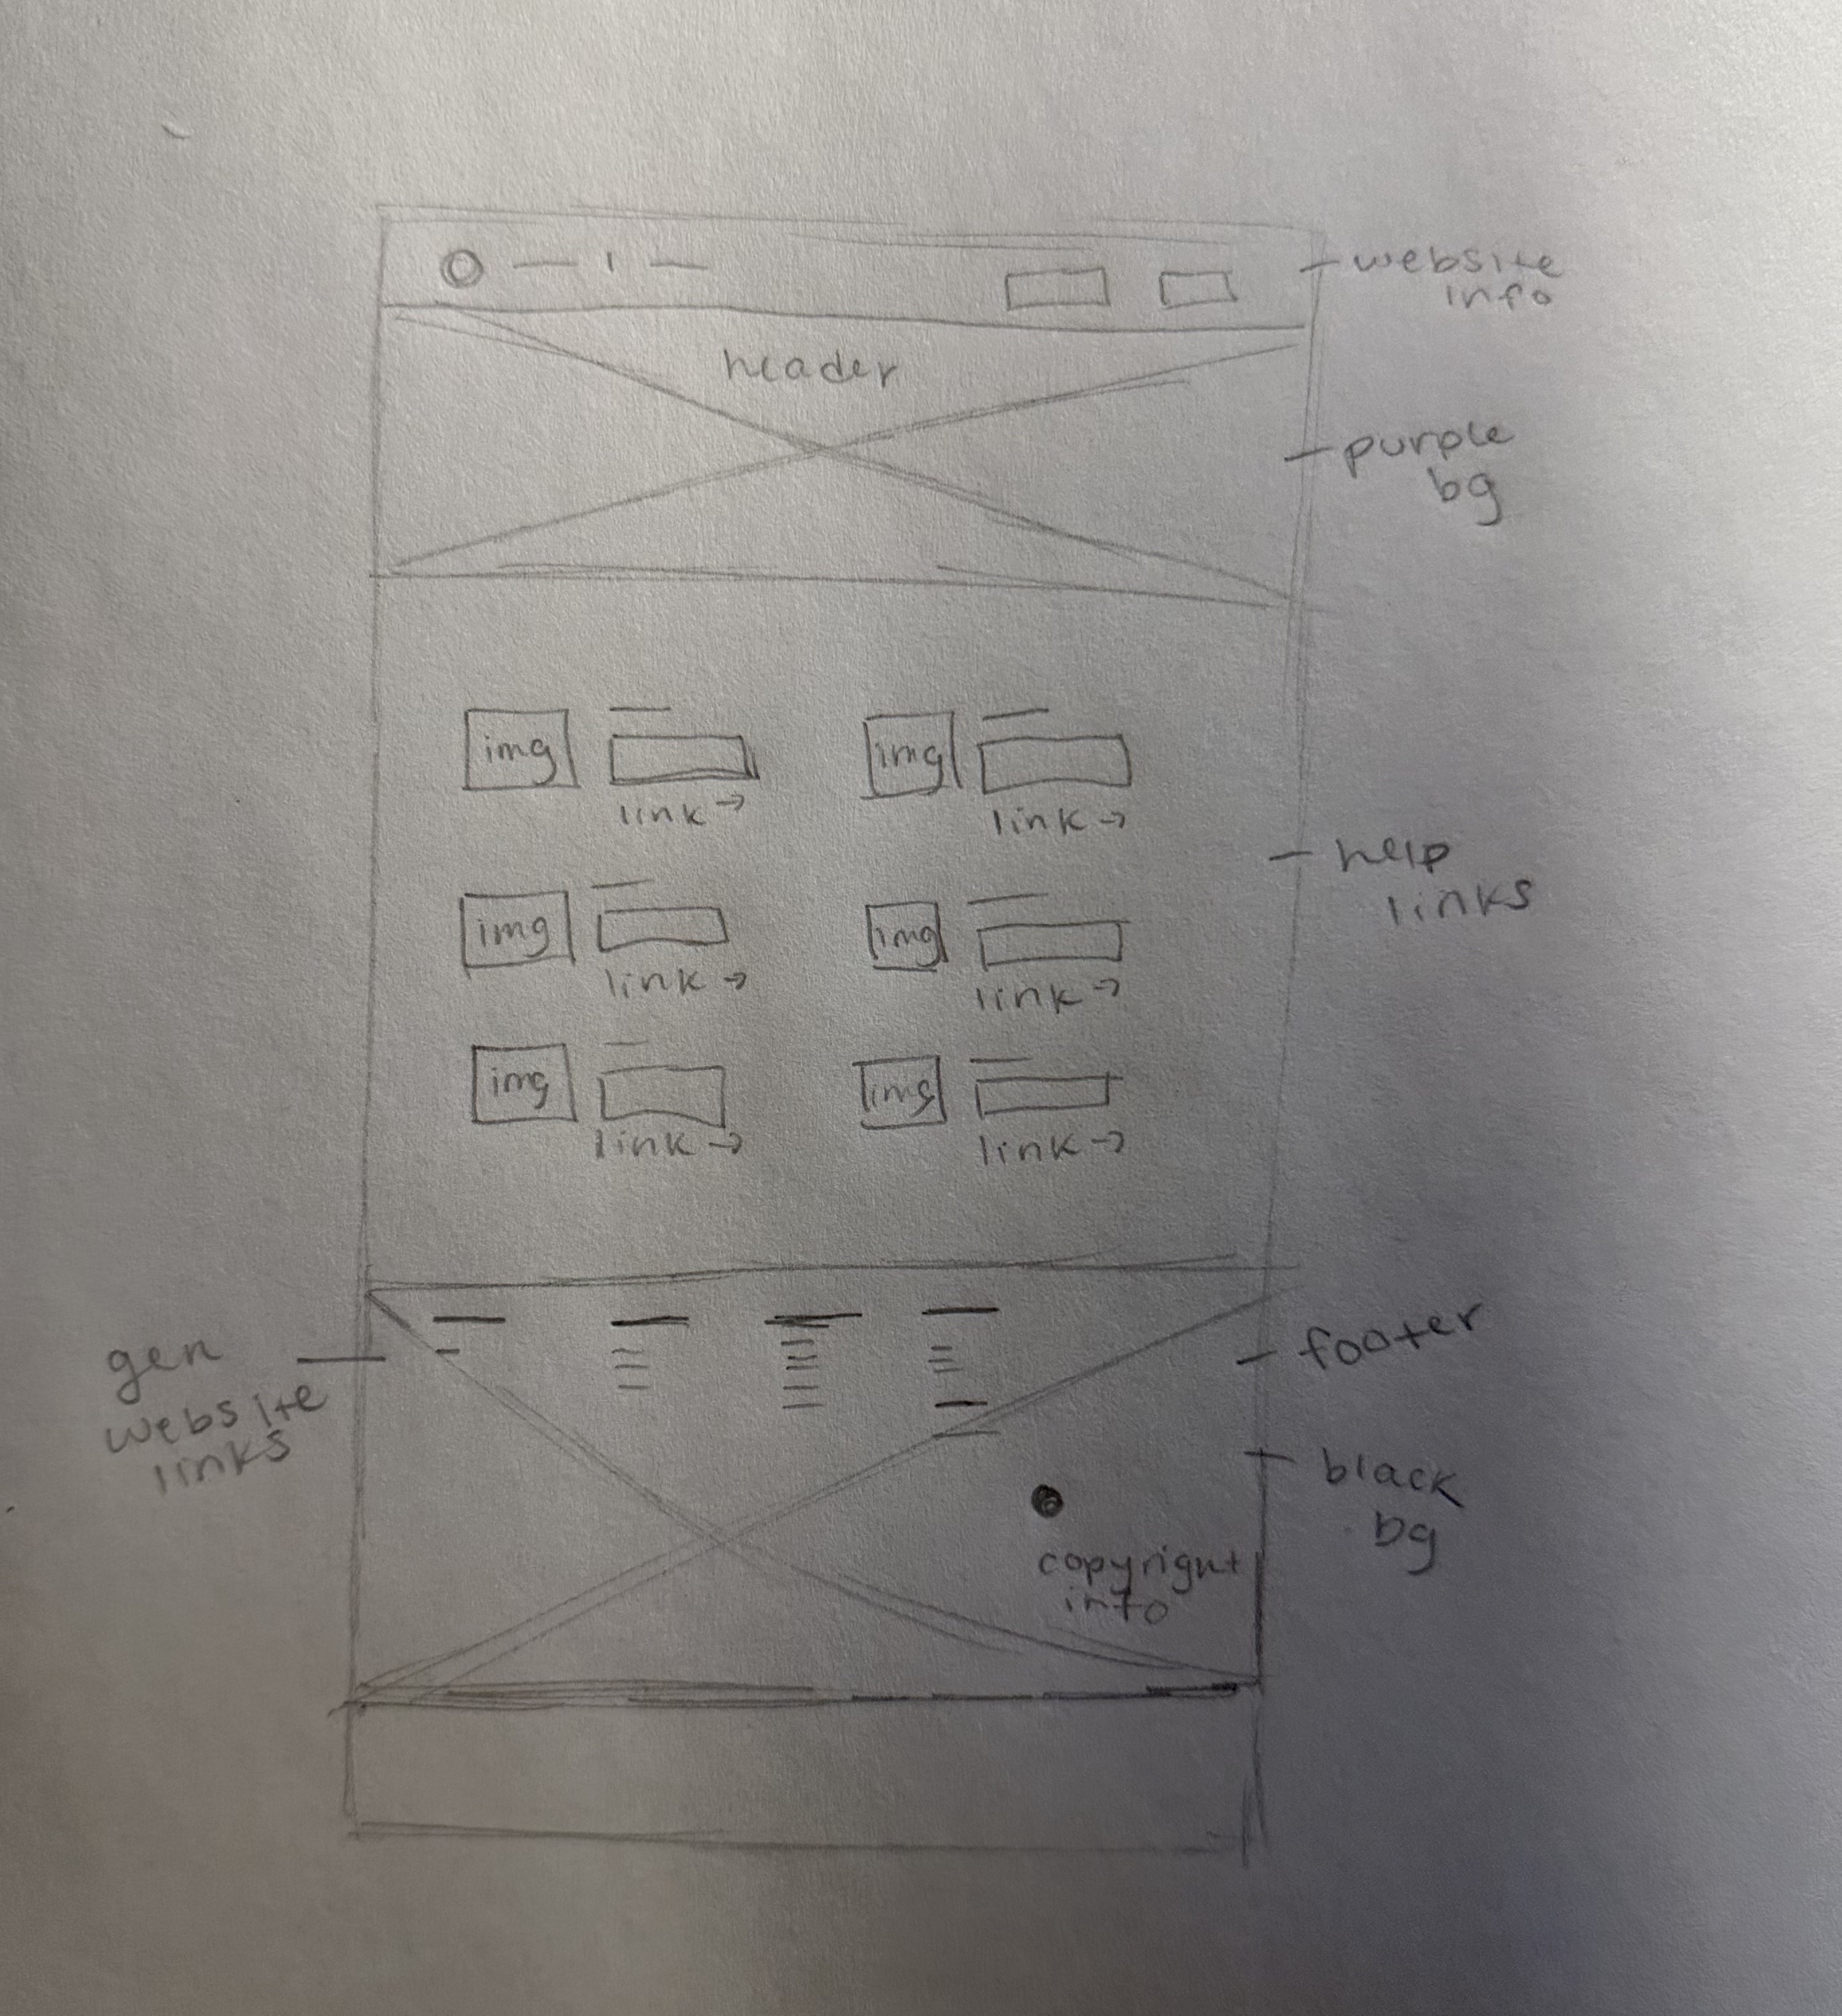 website
info
header
purple
bg
img
img
link →
link →
help
links
img
img
link →
link →
img
img
link →
link →
gen
website
links
footer
black
bg
copyright
info